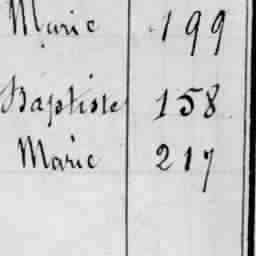 Marie 199
Baptiste 158
Marie 217